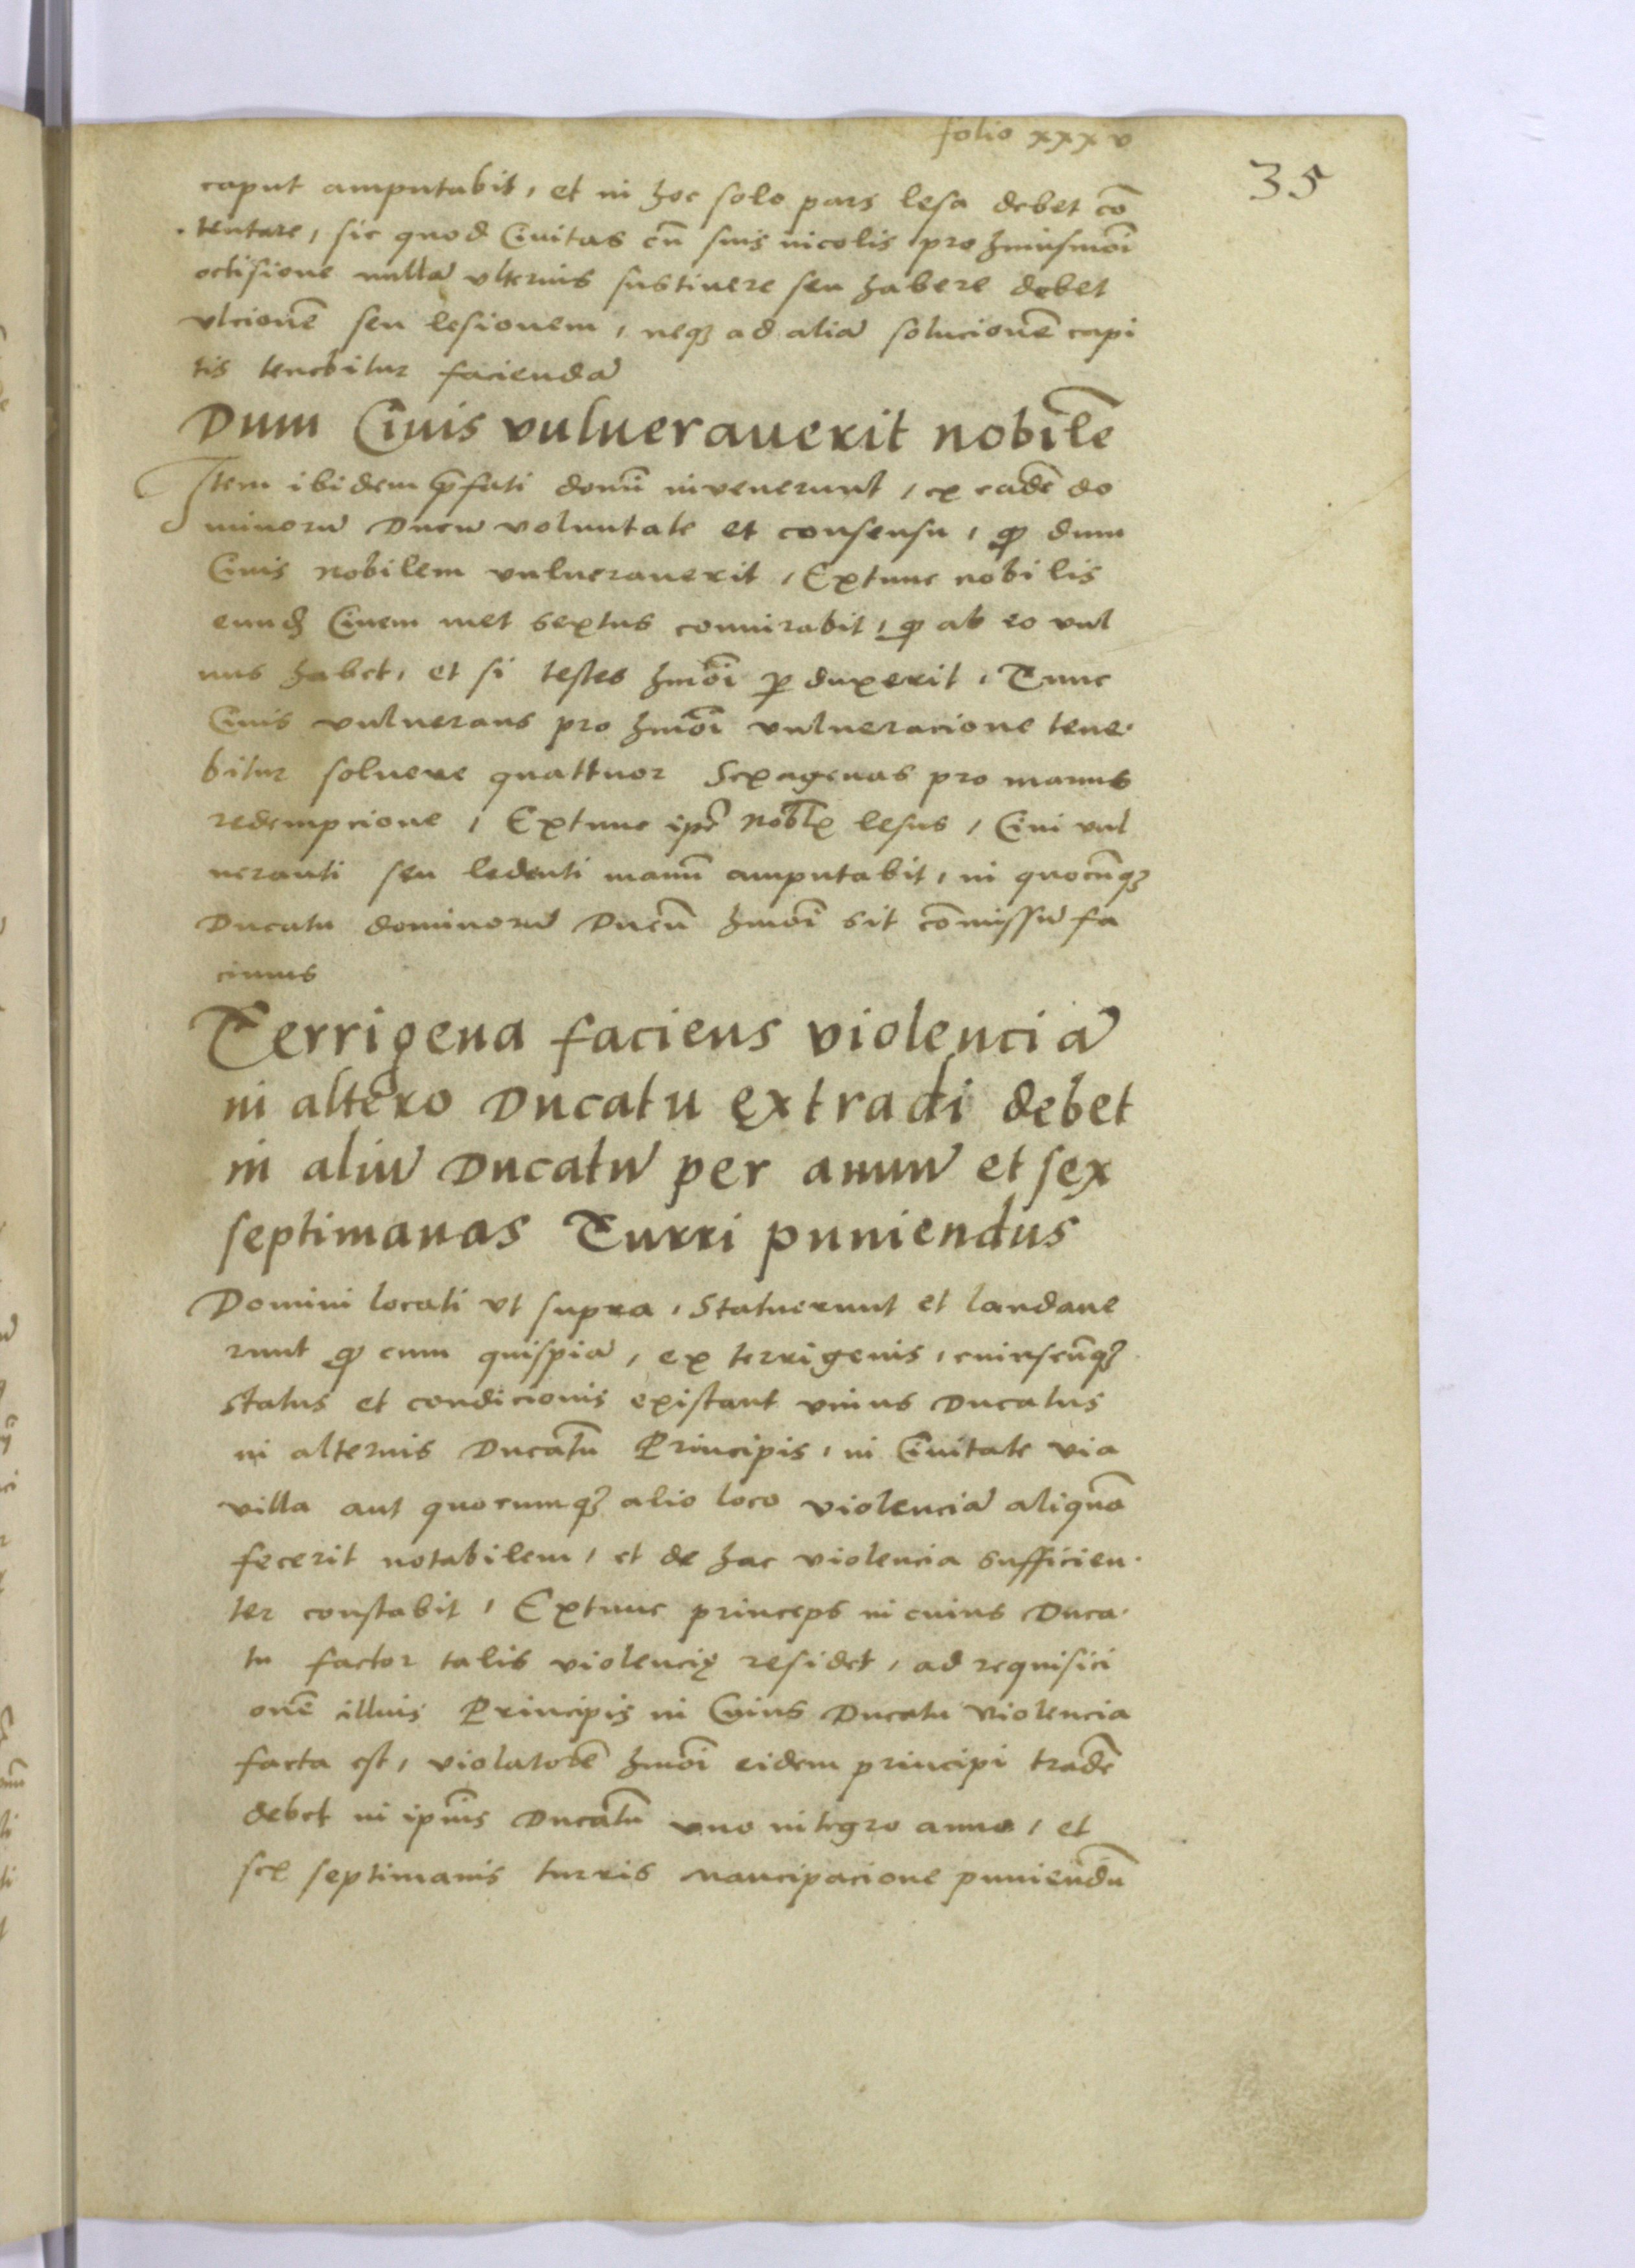 folio xxxv
35
caput amputabit, et in hoc solo pars lesa debet cō
tentare, sic quod Ciuitas cū suis incolis pro huiusmōi
occisione nullā vlterius sustinere seu habere debet
vlcionē seu lesionem, neqȝ ad aliā solucionē capi
tis tenebitur faciendā
Dum Ciuis vulnerauerit nobilē
Item ibidem p̄fati domī invenerunt, ex eadē do
minorū Ducū voluntate et consensu, ꝙ dum
Ciuis nobilem vulnerauerit, Extunc nobilis
eundȝ Ciuem met sextus conuirabit, ꝙ ab eo vul
nus habet, et si testes hmōi ꝑduxerit, Tunc
Ciuis vulnerans pro hmōi vulneracione tene
bitur soluere quattuor Sexagenas pro manus
redempcione, Extunc ip̄e nobl̄x lesus, Ciui vul
neranti seu ledenti manū amputabit, in quocūqȝ
Ducatu dominorū Ducū hmōi sit cōmissū fa
cinus
Terrigena faciens violenciā
in altero Ducatu extradi debet
in aliū Ducatū per annū et sex
septimanas Turri puniendus
Domini locati vt supra, Statuerunt et laudaue
runt ꝙ cum quispiā, ex terrigenis, cuiuscūqȝ
status et condicionis existant vnius Ducatus
in alterius Ducatū Principis, in Ciuitate via
villa aut quocumqȝ alio loco violenciā aliquā
fecerit notabilem, et de hac violencia sufficien
ter constabit, Extunc princeps in cuius Duca
tu factor talis violencię residet, ad requisici
onē illius Principis in Cuius Ducatu violencia
facta est, violatorē hmōi eidem principi tradē
debet in ip̄ius Ducatū vno integro anno, et
sex septimanis turris mancipacione puniendū